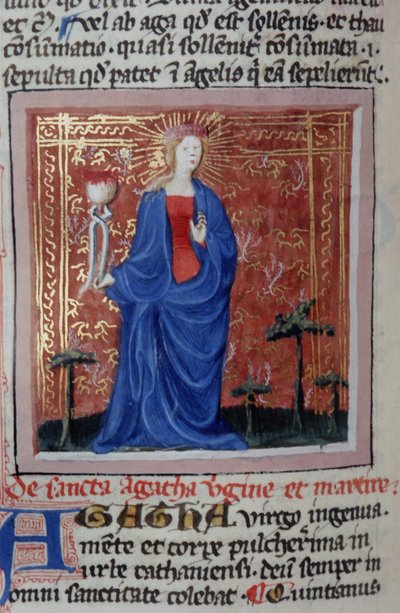 et c̄ Vel ab aga qd̄ est sollēnis. et thau
cōsūmatio. quasi sollēnit̄ cōsumata. i.
sepulta qd̄ patet ī āgelis q̄ eā sepelierūt.
De sancta Agatha v̄gine et martire.
AGAGHA virgo ingenua.
mēte et corpe pulcherrima in
urbe cathaniensi. deū semper in
omni sanctitate colebat. Quintianus